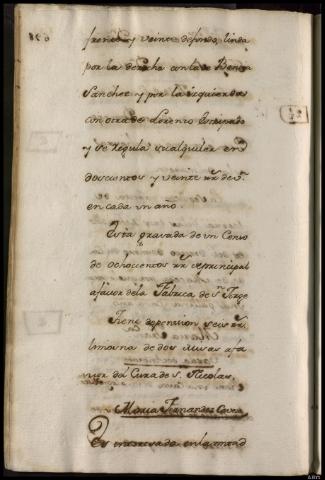 frente y veinte defondo, linda
por la derecha conla de Benita
Sanchez y por la izquierda
con otra de Lorenzo
y se regula su alquiler en
doscientos y veinte rr. de v.
en cada un año.
Esta gravada de un Censo
de ochocientos rr. de principal
afavor dela Fabrica de Sn. Jorge
Tiene de pension seis rr.
limosna de dos misas afa
vor del Cura de S. Nicolas,
Maria Fernandez
Es interesada enla mitad